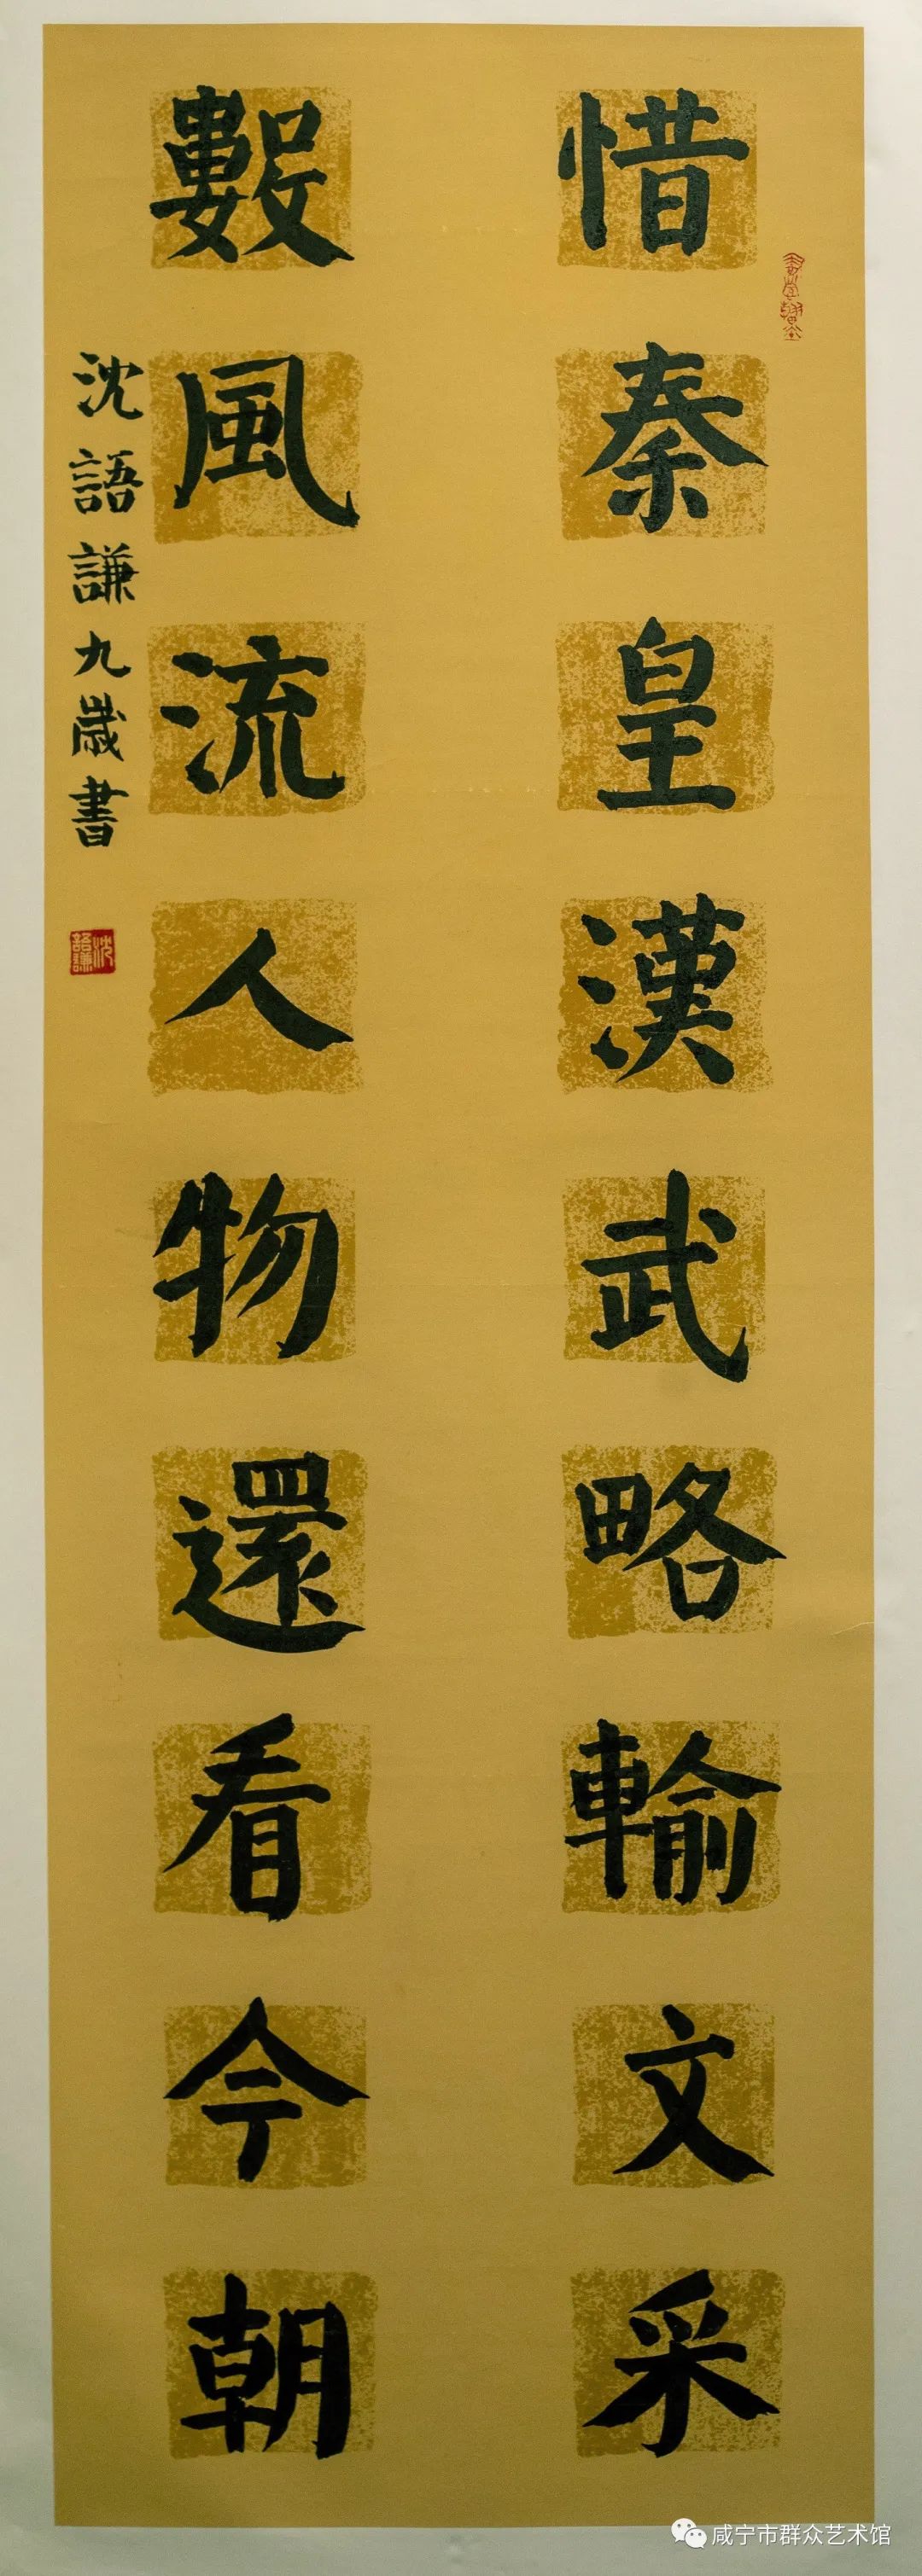 惜秦皇漢武略輸文采
數風流人物還看今朝
沈語謙九歲書
沈語謙
咸宁市群众艺术馆